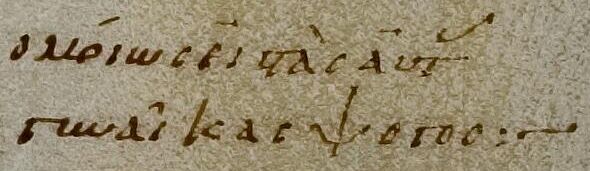 ὁμοίως εἰς τὰς αὐτ
γυναῖκας ψόγος:~